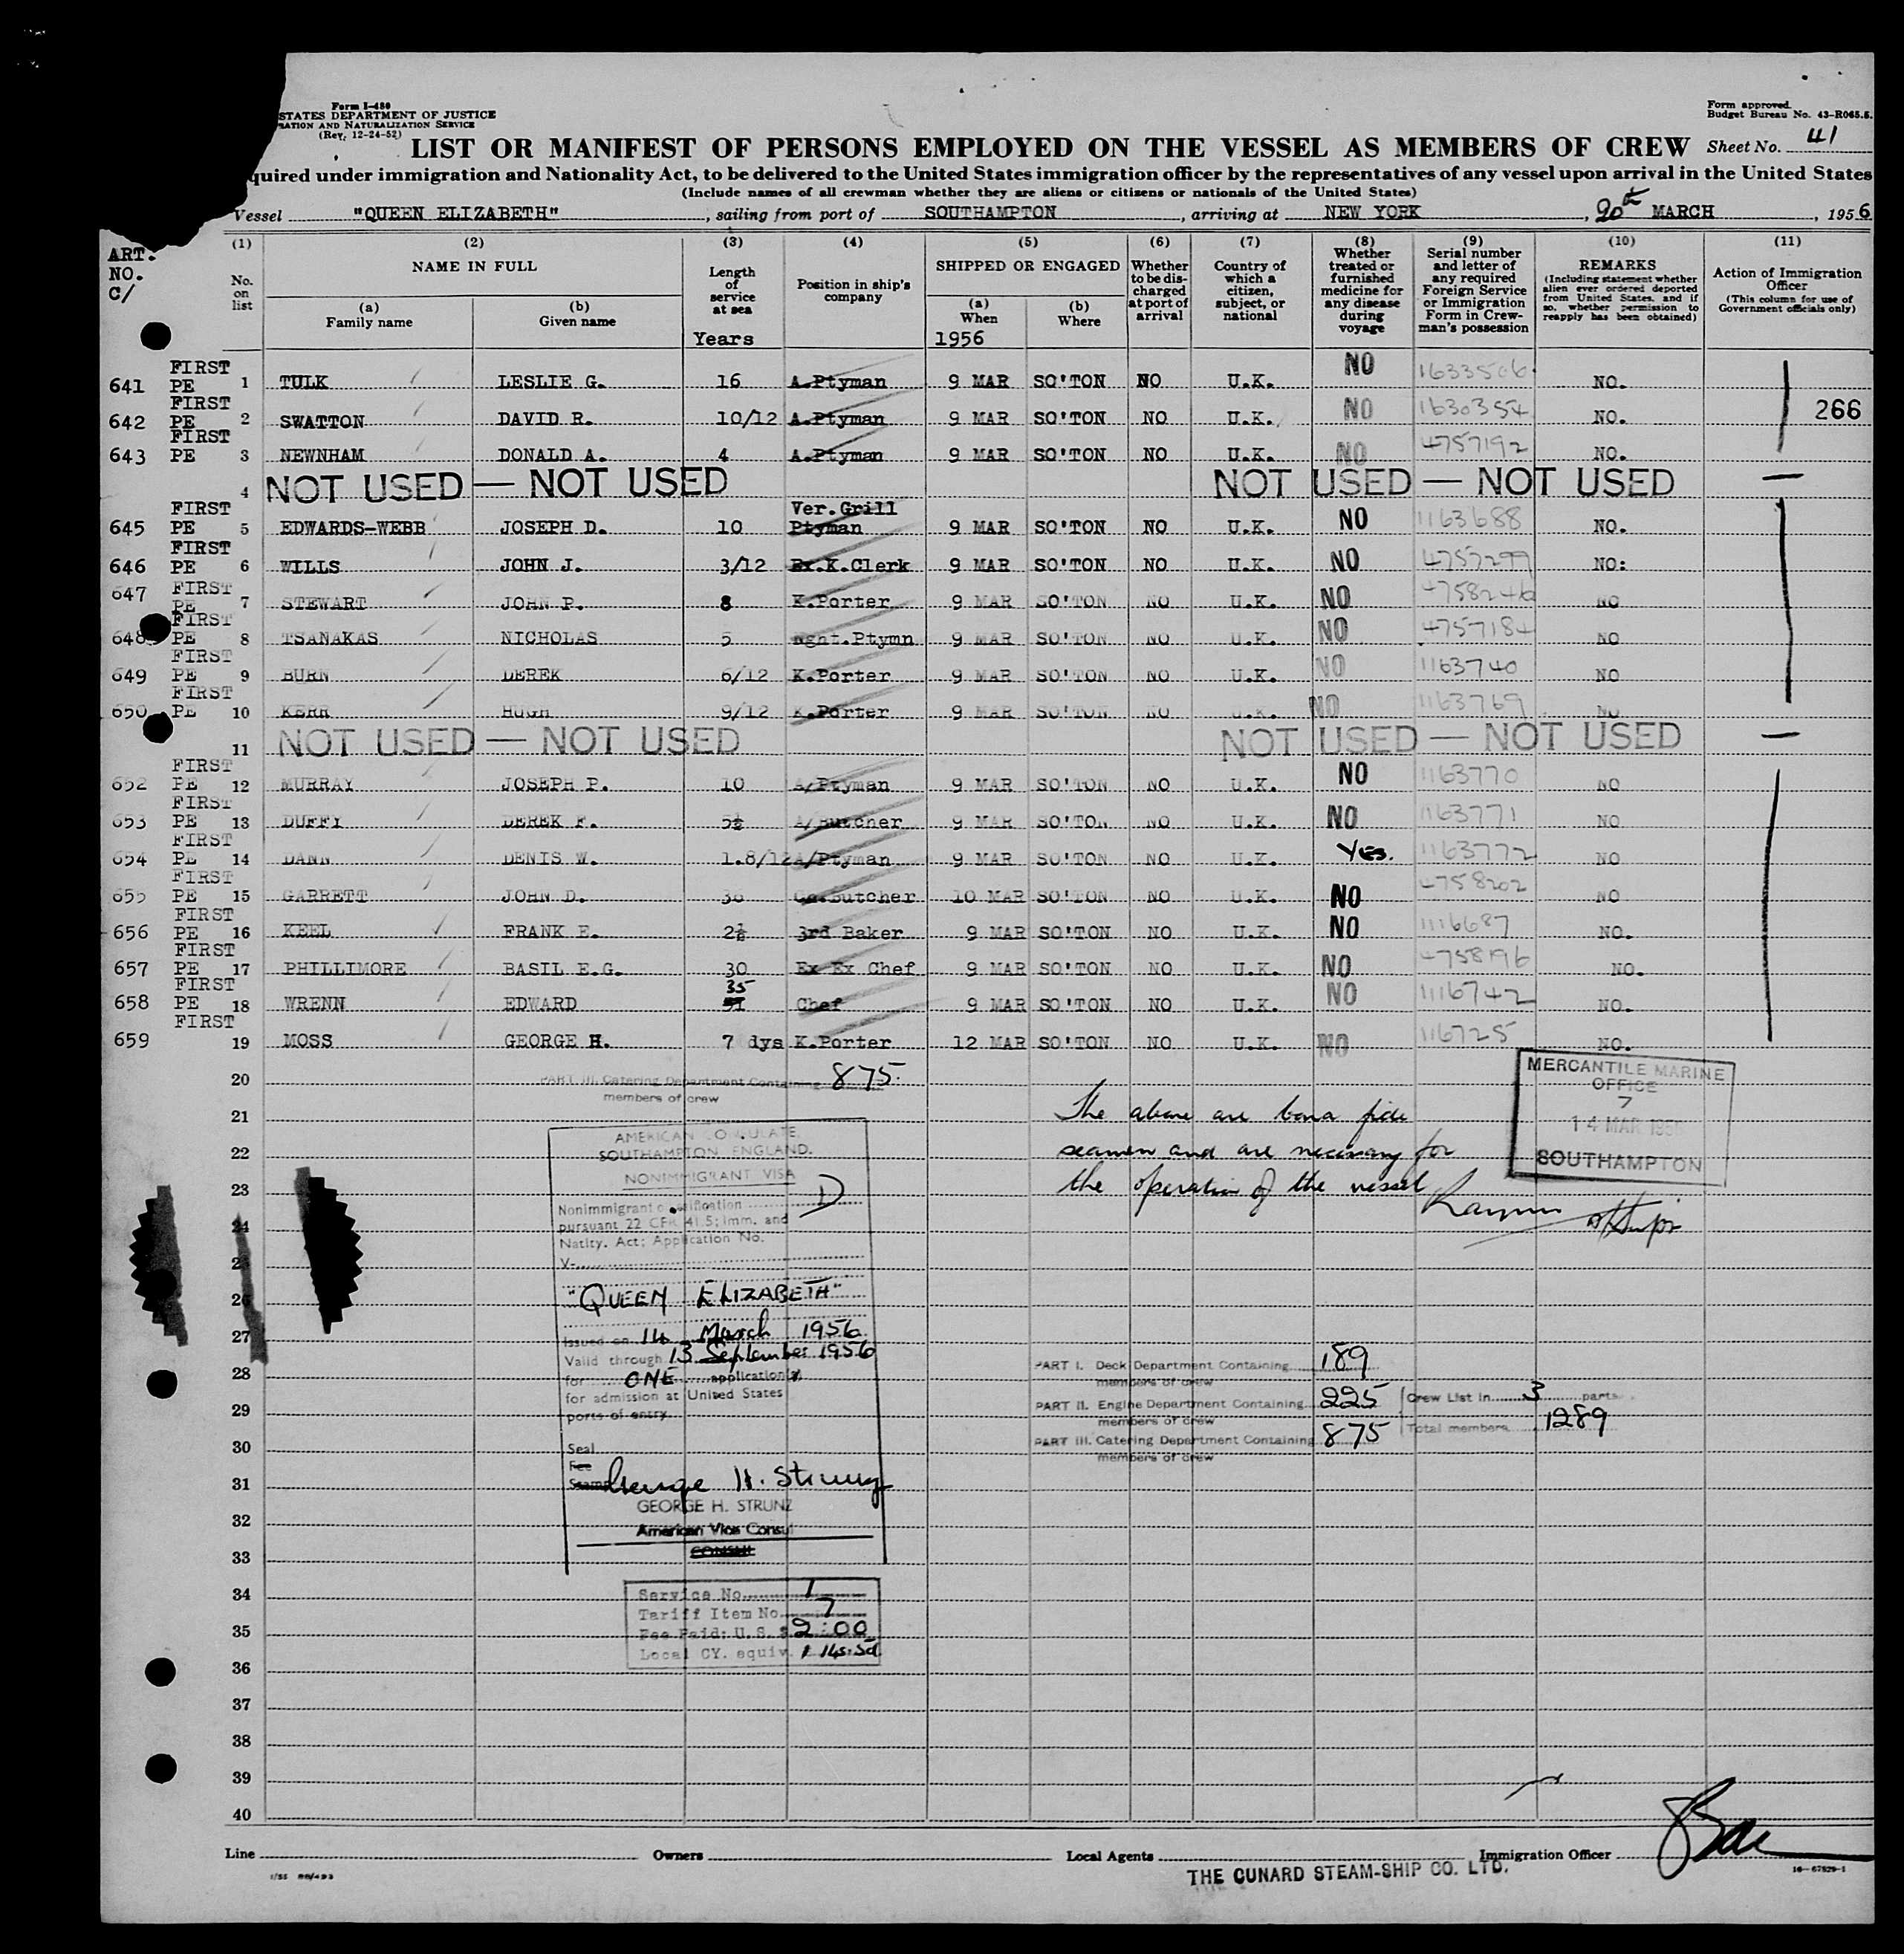 Form I-480
STATES DEPARTMENT OF JUSTICE
ATION AND NATURALIZATION SERVICE
(Rev. 12-24-52)
Form approved.
Budget Bureau No. 43-R065.5.
LIST OR MANIFEST OF PERSONS EMPLOYED ON THE VESSEL AS MEMBERS OF CREW
Sheet No. 41
quired under immigration and Nationality Act, to be delivered to the United States immigration officer by the representatives of any vessel upon arrival in the United States
(Include names of all crewman whether they are aliens or citizens or nationals of the United States)
Vessel "QUEEN ELIZABETH", sailing from port of SOUTHAMPTON, arriving at NEW YORK, 20th MARCH, 1956
ART. NO. C/
(1) No. on list
(2) NAME IN FULL
(a) Family name
(b) Given name
(3) Length of service at sea
Years
(4) Position in ship's company
(5) SHIPPED OR ENGAGED
(a) When
1956
(b) Where
(6) Whether to be discharged at port of arrival
(7) Country of which a citizen, subject, or national
(8) Whether treated or furnished medicine for any disease during voyage
(9) Serial number and letter of any required Foreign Service or Immigration Form in Crewman's possession
(10) REMARKS (Including statement whether alien ever ordered deported from United States, and if so, whether permission to reapply has been obtained)
(11) Action of Immigration Officer (This column for use of Government officials only)
641 FIRST PE 1 TULK LESLIE G. 16 A.Ptyman 9 MAR SO'TON NO U.K. NO 1633506 NO.
642 FIRST PE 2 SWATTON DAVID R. 10/12 A.Ptyman 9 MAR SO'TON NO U.K. NO 1630354 NO. 266
643 FIRST PE 3 NEWNHAM DONALD A. 4 A.Ptyman 9 MAR SO'TON NO U.K. NO 4757192 NO.
4 NOT USED — NOT USED NOT USED — NOT USED —
645 FIRST PE 5 EDWARDS-WEBB JOSEPH D. 10 Ver.Grill Ptyman 9 MAR SO'TON NO U.K. NO 1163688 NO.
646 FIRST PE 6 WILLS JOHN J. 3/12 Ex.K.Clerk 9 MAR SO'TON NO U.K. NO 4757299 NO:
647 FIRST PE 7 STEWART JOHN P. 8 K.Porter 9 MAR SO'TON NO U.K. NO 4758246 NO
648 FIRST PE 8 TSANAKAS NICHOLAS 5 nght.Ptymn 9 MAR SO'TON NO U.K. NO 4757184 NO
649 FIRST PE 9 BURN DEREK 6/12 K.Porter 9 MAR SO'TON NO U.K. NO 1163740 NO
650 FIRST PE 10 KERR HUGH 9/12 K.Porter 9 MAR SO'TON NO U.K. NO 1163769 NO
11 NOT USED — NOT USED NOT USED — NOT USED —
652 FIRST PE 12 MURRAY JOSEPH P. 10 A/Ptyman 9 MAR SO'TON NO U.K. NO 1163770 NO
653 FIRST PE 13 DUFFY DEREK F. 5½ A/Butcher 9 MAR SO'TON NO U.K. NO 1163771 NO
654 FIRST PE 14 DANN DENIS W. 1.8/12 A/Ptyman 9 MAR SO'TON NO U.K. Yes. 1163772 NO
655 FIRST PE 15 GARRETT JOHN D. 36 Butcher 10 MAR SO'TON NO U.K. NO 4758202 NO
656 FIRST PE 16 KEEL FRANK E. 2½ 3rd Baker 9 MAR SO'TON NO U.K. NO 1116687 NO.
657 FIRST PE 17 PHILLIMORE BASIL E.G. 30 Ex Ex Chef 9 MAR SO'TON NO U.K. NO 4758196 NO.
658 FIRST PE 18 WRENN EDWARD 35 Chef 9 MAR SO'TON NO U.K. NO 1116742 NO.
659 FIRST 19 MOSS GEORGE H. 7 dys K.Porter 12 MAR SO'TON NO U.K. NO 116725 NO.
20
PART III. Catering Department Containing 875.
members of crew
21
22
23
24
25
26
27
28
29
30
31
32
33
34
35
36
37
38
39
40
The above are bona fide
seamen and are necessary for
the operation of the vessel
MERCANTILE MARINE
OFFICE
7
14 MAR 1956
SOUTHAMPTON
AMERICAN CONSULATE,
SOUTHAMPTON ENGLAND.
NONIMMIGRANT VISA
Nonimmigrant classification D
pursuant 22 CFR 41.5; Imm. and
Natity. Act; Application No.
V-
"QUEEN ELIZABETH"
Issued on 14 March 1956
Valid through 13 September 1956
for ONE application
for admission at United States
ports of entry
Seal
Fee
Stamp George H. Strunz
GEORGE H. STRUNZ
American Vice Consul
CONSUL
PART I. Deck Department Containing 189
members of crew
PART II. Engine Department Containing 225
members of crew
PART III. Catering Department Containing 875
members of crew
Crew List in 3 parts
Total members 1289
Service No. 1
Tariff Item No. 7
Fee Paid: U.S. $ 2:00
Local CY. equiv. 14s:5d
Line
Owners
Local Agents
THE CUNARD STEAM-SHIP CO. LTD.
Immigration Officer
16—67529-1